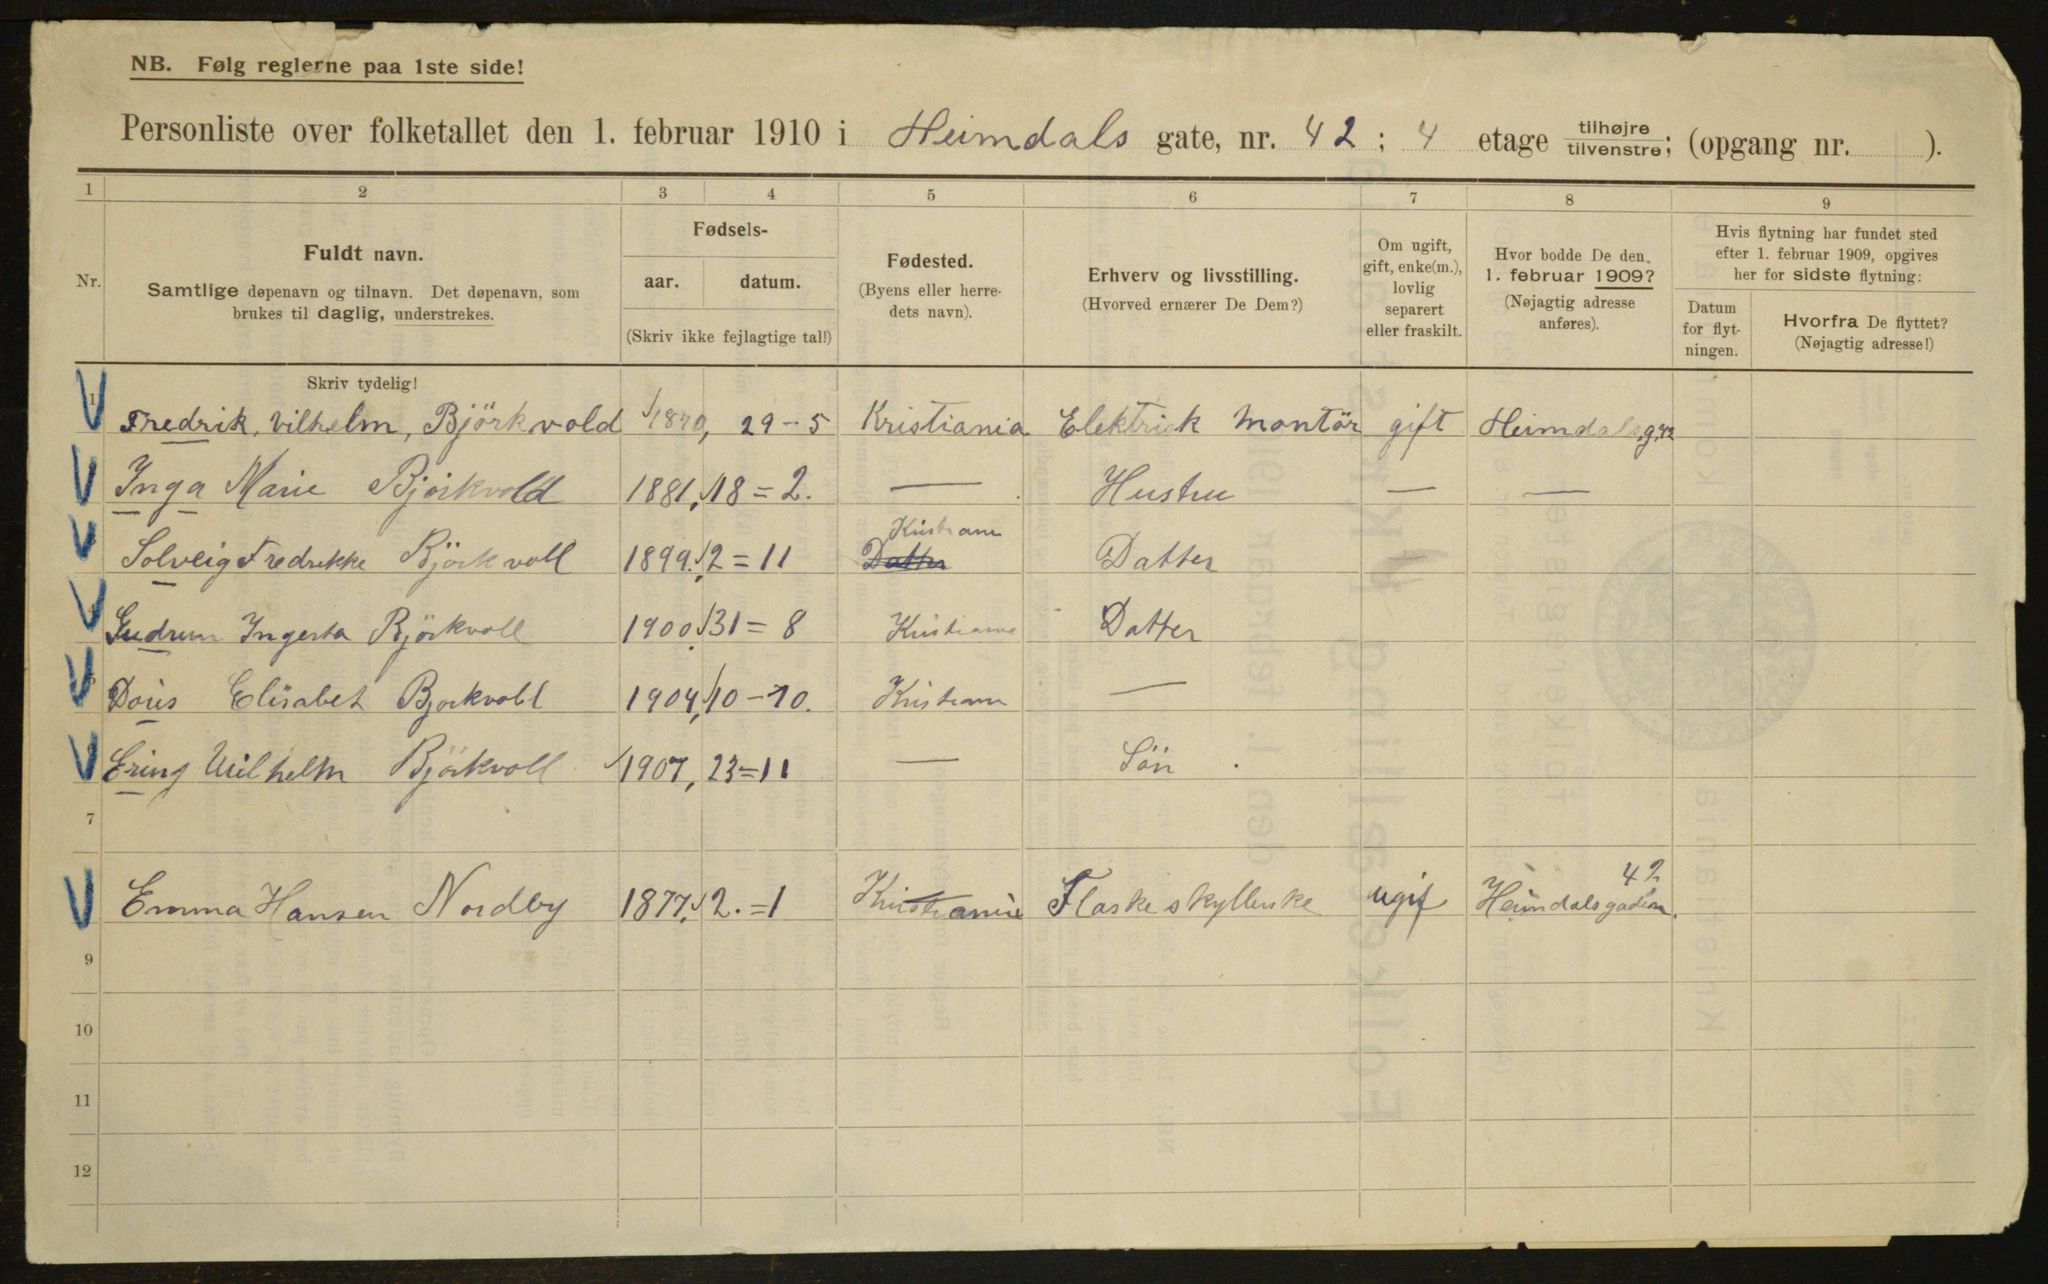 NB. Følg reglerne paa 1ste side!
Personliste over folketallet den 1. februar 1910 i Heimdals gate, nr. 42 ; 4 etage tilhøjre / tilvenstre ; (opgang nr. ).
1 2 3 4 5 6 7 8 9
Nr.
Fuldt navn.
Samtlige døpenavn og tilnavn. Det døpenavn, som
brukes til daglig, understrekes.
Fødsels-
aar. datum.
(Skriv ikke fejlagtige tal!)
Fødested.
(Byens eller herre-
dets navn).
Erhverv og livsstilling.
(Hvorved ernærer De Dem?)
Om ugift,
gift, enke(m.),
lovlig
separert
eller fraskilt.
Hvor bodde De den
1. februar 1909?
(Nøjagtig adresse
anføres).
Hvis flytning har fundet sted
efter 1. februar 1909, opgives
her for sidste flytning:
Datum
for flyt-
ningen.
Hvorfra De flyttet?
(Nøjagtig adresse!)
Skriv tydelig!
1 Fredrik, Vilhelm, Björkvold 1870, 29-5 Kristiania Elektrisk Montör gift Heimdals.g.42
Inga Marie Bjørkvold 1881, 18=2. — Hustru — —
Kristiania
Solveig Fredrikke Björkvoll 1899. 2=11 Datter Datter
Gudrun Ingerta Björkvoll 1900. 31=8 Kristiania Datter
Doris Elisabet Bjorkvoll 1904, 10-10. Kristiania —
Ering Wilhelm Björkvoll 1907, 23=11 — Sön
7
42
Emma Hansen Nordby 1877, 2.=1 Kristianie Flaskeskyllerske ugif Heimdalsgaden
9
10
11
12